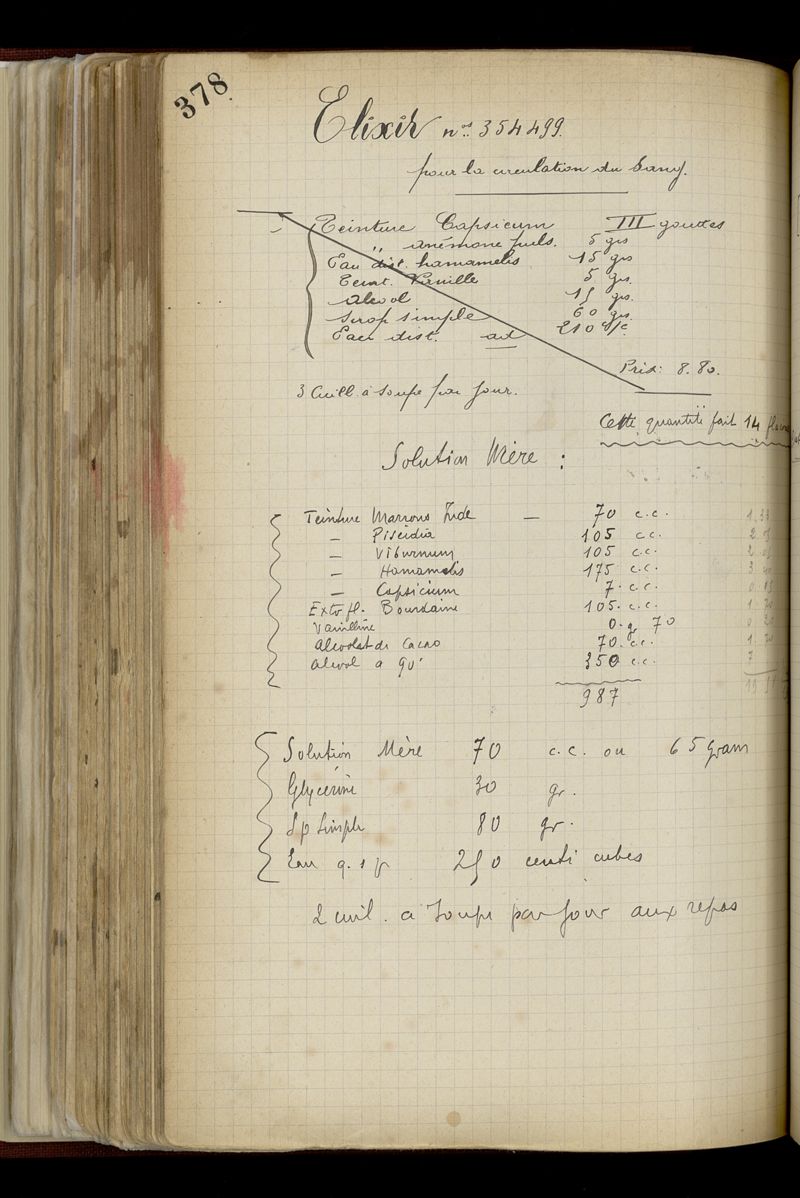 378
Elixir nos 354499.
pour la circulation du Sang.
Teinture Capsicum III gouttes
" anémone puls. 5 grs
Eau dist. hamamelis 15 grs
Teint. Vanille 5 grs.
Alcool 15 grs.
Sirop simple 60 grs.
Eau dist. ad 210
Prix: 8.80.
3 Cuill. à soupe par jour.
Cette quantité fait 14
Solution Mère :
Teinture Marrons Inde — 70 c.c.
— Piscidia 105 c.c.
— Viburnum 105 c.c.
— Hamamelis 175 c.c.
— Capsicum 7. c.c.
Extr fl. Bourdaine 105. c.c.
Vanilline 0. gr 70
Alcoolat de Cacao 70. c.c.
alcool a 90° 350 c.c.
987
Solution Mère 70 c.c. ou 65 gram
Glycérine 30 gr.
Sp Simple 80 gr.
Eau q. s p 250 centi cubes
2 cuil. a Soupe par jour aux repas